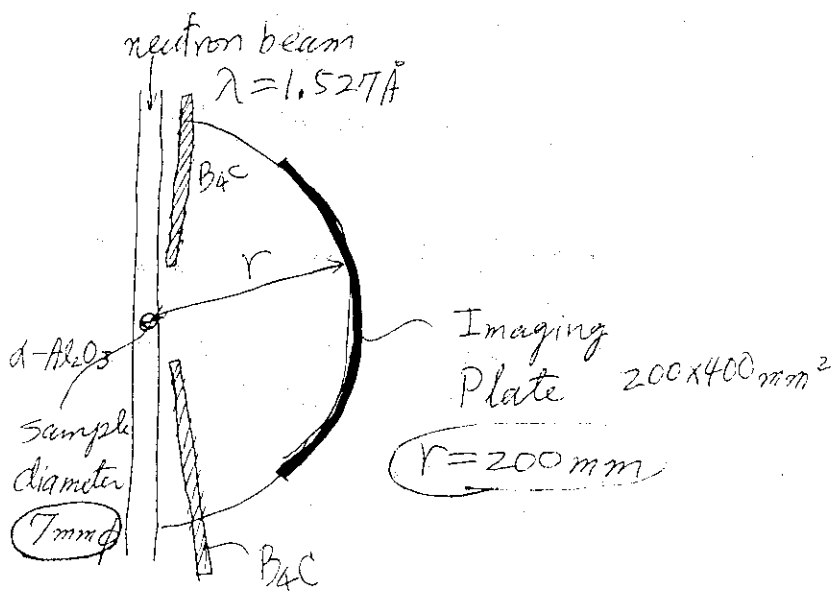 neutron beam
λ=1.527Å
B₄C
r
α-Al₂O₃
sample
diameter
7mmφ
Imaging
Plate 200x400mm²
r=200mm
B₄C